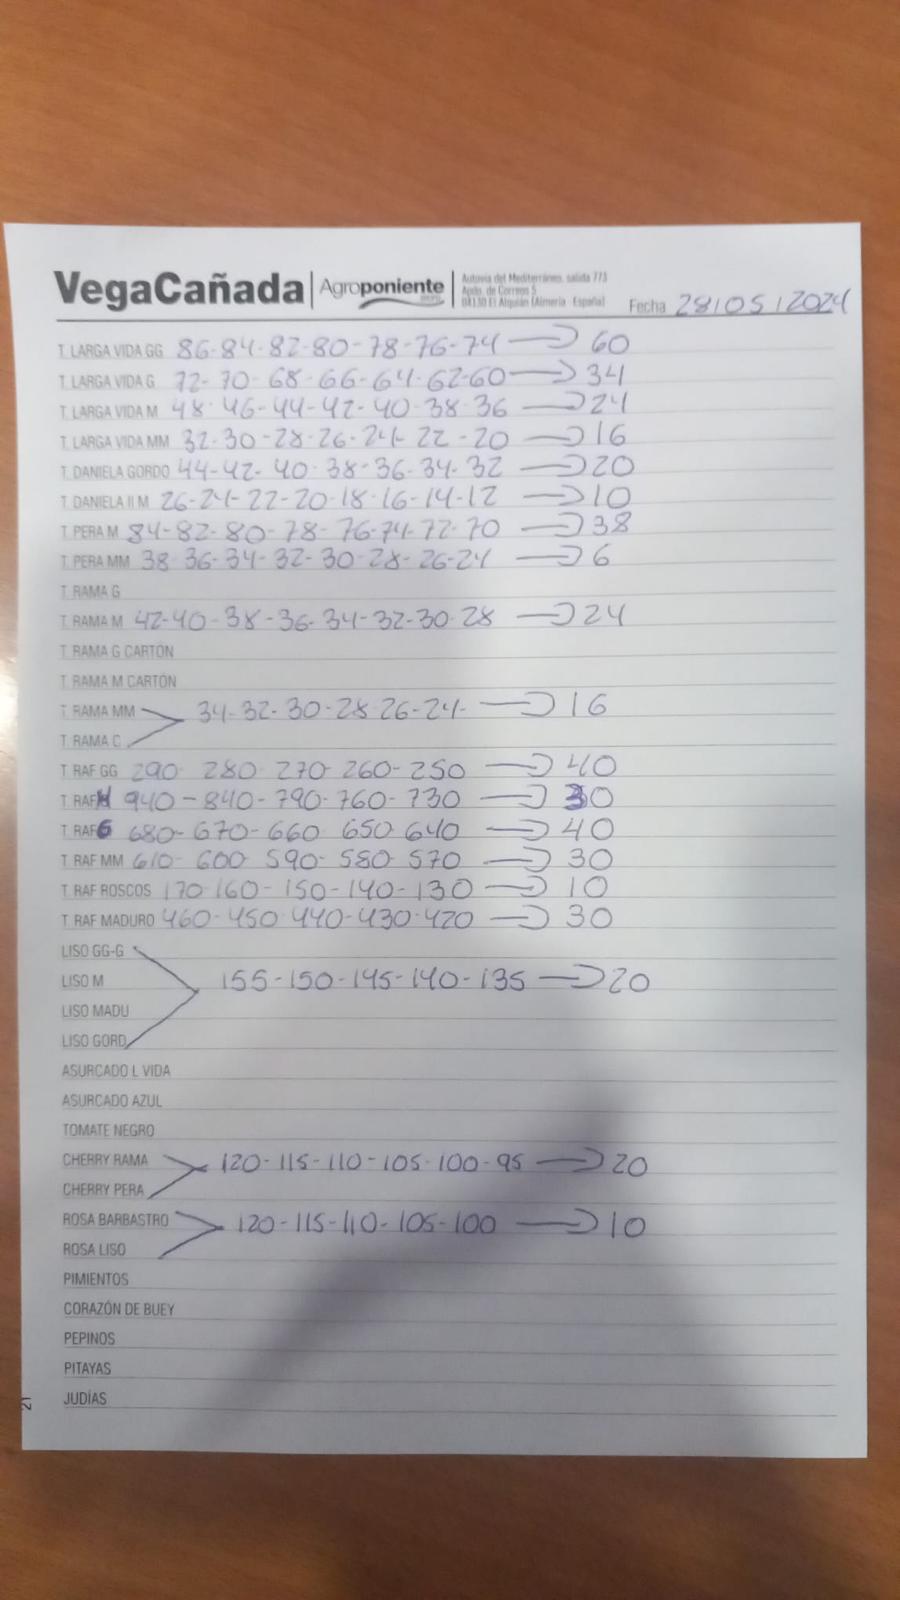 VegaCañada Agroponiente Autovía del Mediterráneo, salida 773
Apdo. de Correos 5
04130 El Alquián (Almería - España)
Fecha 28/05/2024
T. LARGA VIDA GG 86-84-82-80-78-76-74 → 60
T. LARGA VIDA G 72-70-68-66-64-62-60 → 34
T. LARGA VIDA M 48-46-44-42-40-38-36 → 24
T. LARGA VIDA MM 32-30-28-26-24-22-20 → 16
T. DANIELA GORDO 44-42-40-38-36-34-32 → 20
T. DANIELA II M 26-24-22-20-18-16-14-12 → 10
T. PERA M 84-82-80-78-76-74-72-70 → 38
T. PERA MM 38-36-34-32-30-28-26-24 → 6
T. RAMA G
T. RAMA M 42-40-38-36-34-32-30-28 → 24
T. RAMA G CARTÓN
T. RAMA M CARTÓN
T. RAMA MM 34-32-30-28-26-24- → 16
T. RAMA C
T. RAF GG 290-280-270-260-250 → 40
T. RAF M 940-840-790-760-730 → 30
T. RAF G 680-670-660-650-640 → 40
T. RAF MM 610-600-590-580-570 → 30
T. RAF ROSCOS 170-160-150-140-130 → 10
T. RAF MADURO 460-450-440-430-420 → 30
LISO GG-G
LISO M 155-150-145-140-135 → 20
LISO MADU
LISO GORD
ASURCADO L VIDA
ASURCADO AZUL
TOMATE NEGRO
CHERRY RAMA 120-115-110-105-100-95 → 20
CHERRY PERA
ROSA BARBASTRO 120-115-110-105-100 → 10
ROSA LISO
PIMIENTOS
CORAZÓN DE BUEY
PEPINOS
PITAYAS
JUDÍAS
21